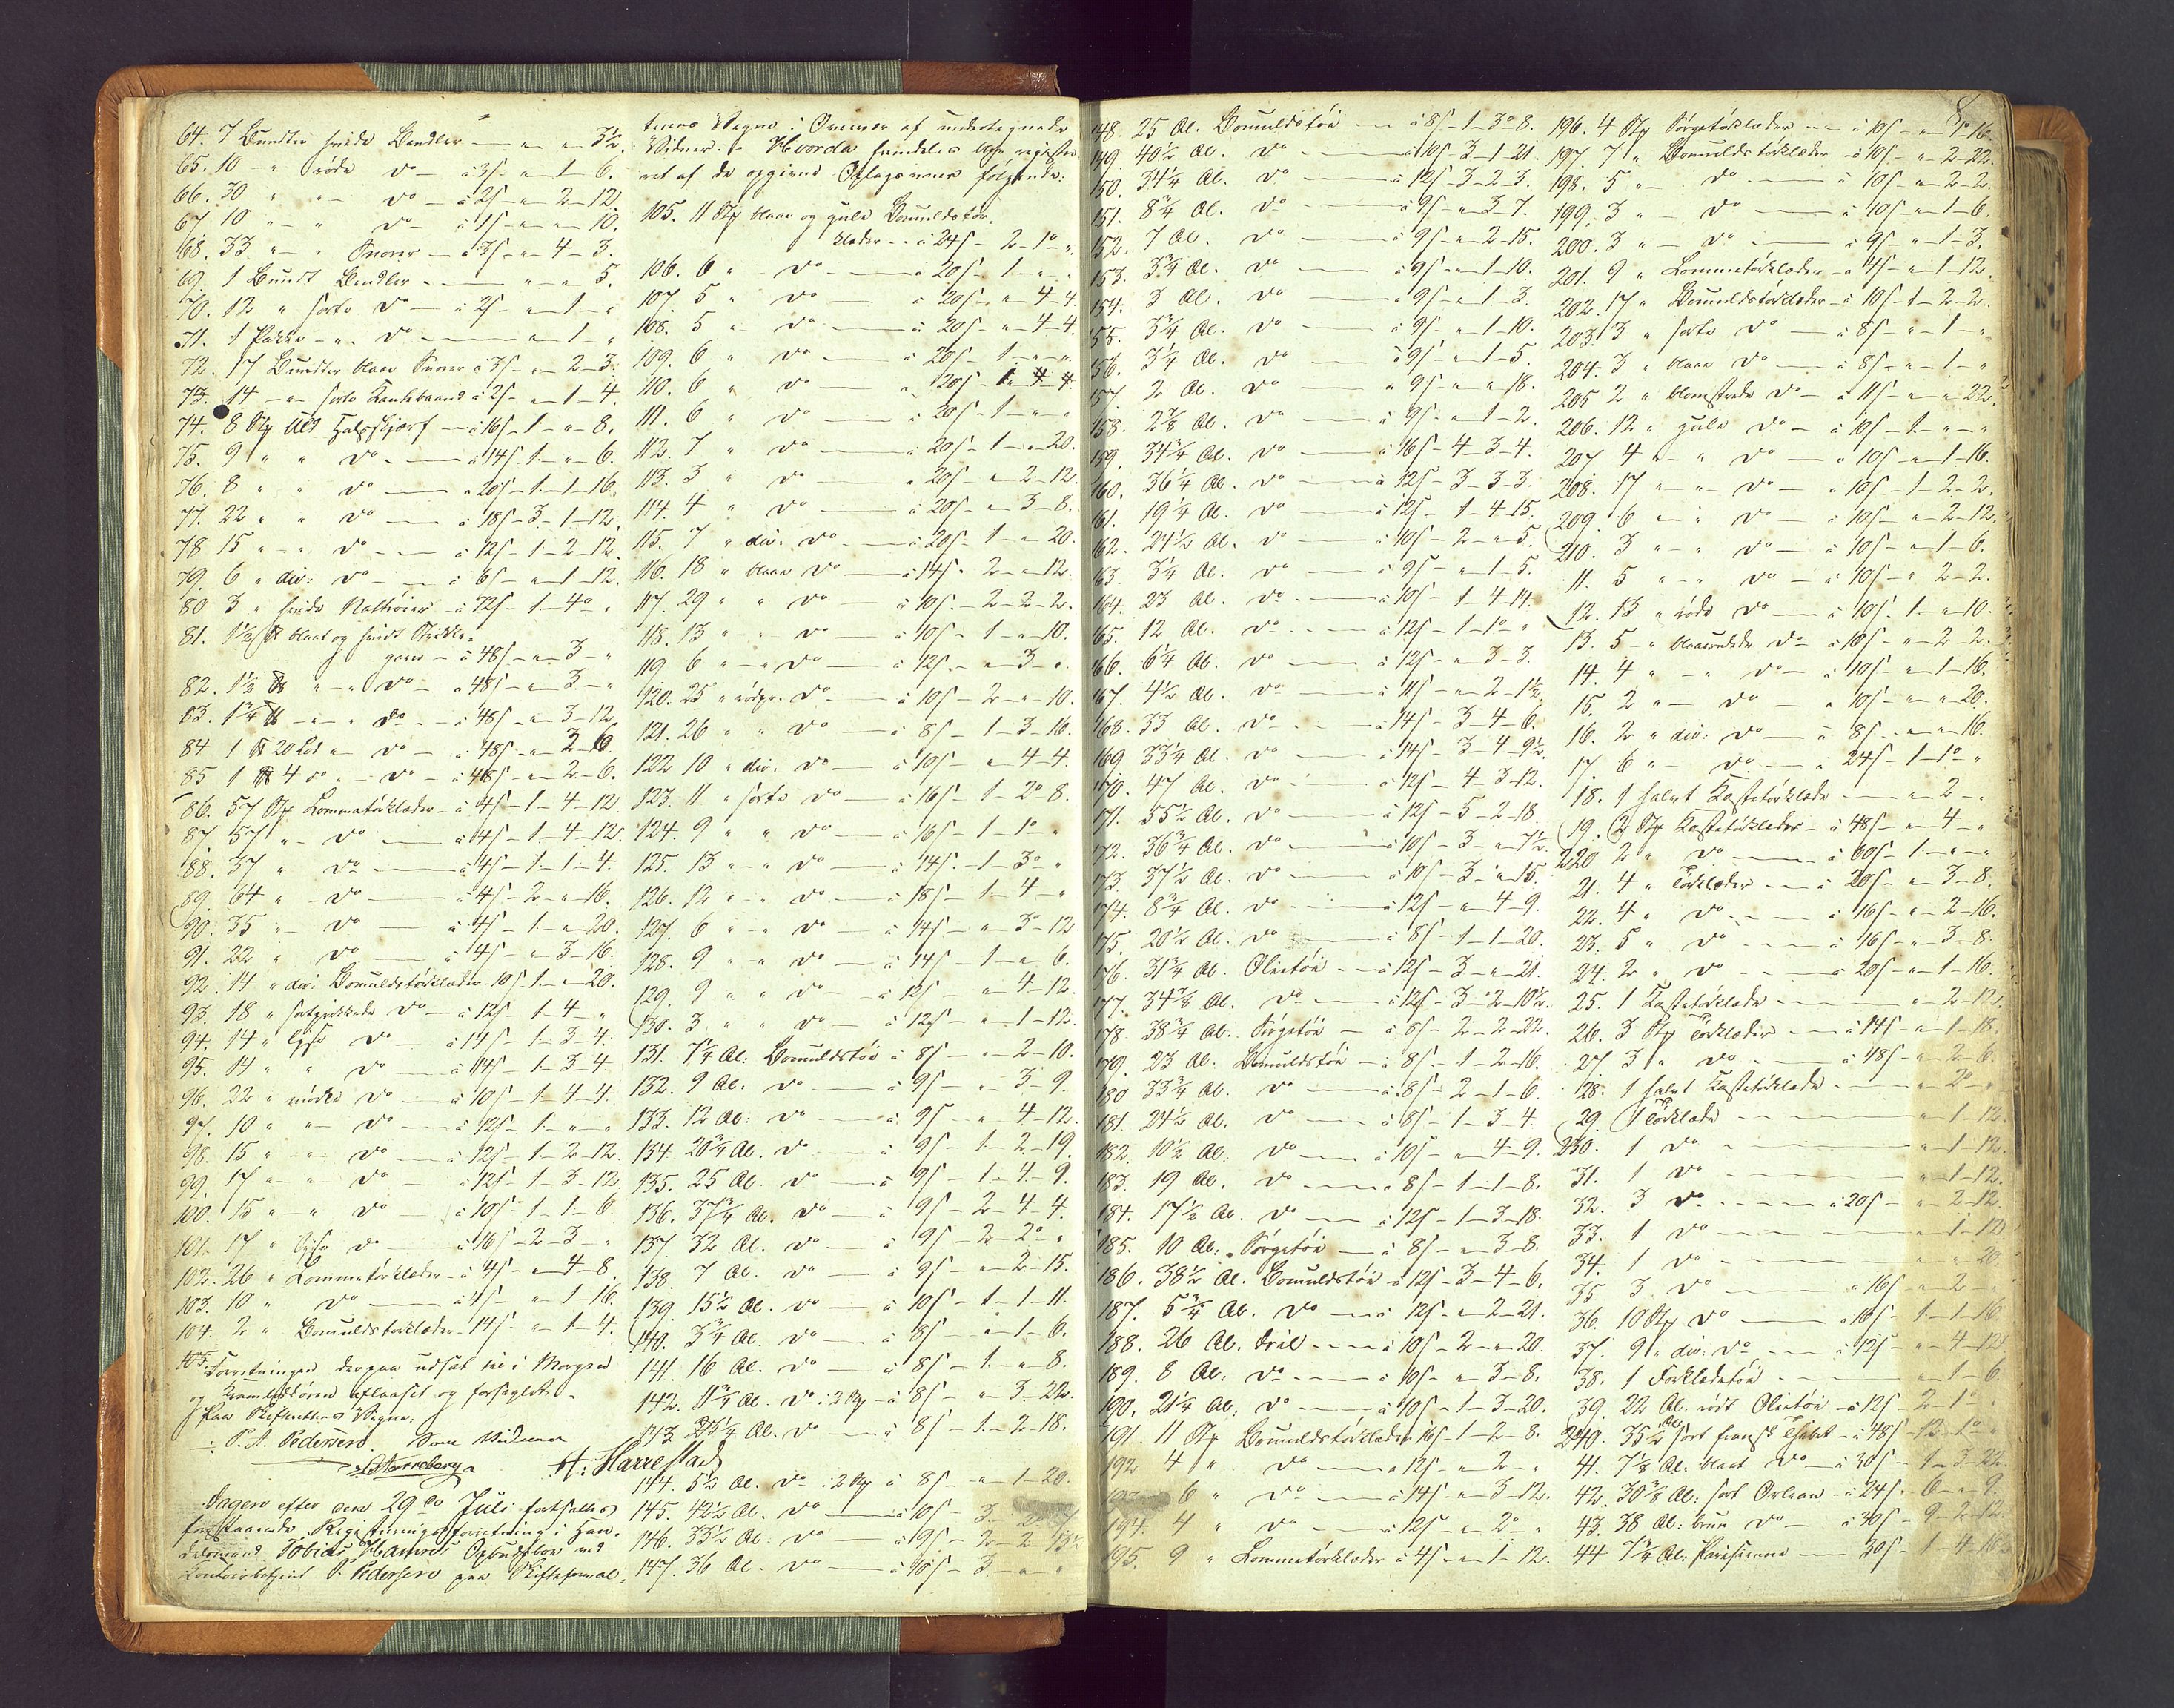 64. 7 Bundter hvide Bendler — " — " — 3½.
65. 10 — " røde Do — à 3ſ — " — 1 — 6.
66. 30 " " — Do — à 2ſ — " — 2 — 12.
67. 10 " — " Do — à 1ſ — " — " — 10.
68. 33 " — " Snorer — à 3ſ — " — 4 — 3.
69. 1 Bundt Bendler — " — " — 5.
70. 12 " sorte Do — à 2ſ — " — 1 — "
71. 1 Pakke — " Do — " — 1 — "
72. 17 Bundter blaae Snorer à 3ſ — " — 2 — 3.
73. 14 — " — sorte Kantebaand à 2ſ — " — 1 — 4.
74. 8 Stk Uld Halsskjærf — à 16ſ — 1 — " — 8.
75. 9 " " Do — à 14ſ — 1 — " — 6.
76. 8 " " Do — à 20ſ — 1 — 1 — 16.
77. 22 " " Do — à 18ſ — 3 — 1 — 12.
78 15 " — " Do — à 12ſ — 1 — 2 — 12.
79. 6 " div: Do — à 6ſ — " — 1 — 12.
80 3 " hvide Nathuer — à 72ſ — 1 — 4 — "
81. 1½ ℔ blaat og hvidt Strikke-
garn — à 48ſ — " — 3 — "
82. 1½ ℔ " — " Do — à 48ſ — " — 3 — "
83. 1¾ ℔ — " — " Do — à 48ſ — " — 3 — 12.
84 1 ℔ 20 Lod " — Do — à 48ſ — " — 3 — 6.
85 1 ℔ 4 Do " — Do — à 48ſ — " — 2 — 6.
86. 57 Stk Lommetørklæder — à 4ſ — 1 — 4 — 12.
87. 57 " — Do — à 4ſ — 1 — 4 — 12.
88. 37 " Do — à 4ſ — 1 — 1 — 4.
89. 64 " — Do — à 4ſ — 2 — " — 16.
90. 35 " — Do — à 4ſ — 1 — " — 20.
91. 22 " Do — à 4ſ — " — 3 — 16.
92. 14 " div: Bomuldstørklæder 10ſ — 1 — " — 20.
93. 18 " sortprikkede Do — à 12ſ — 1 — 4 — "
94. 14 " lyse Do — à 14ſ — 1 — 3 — 4.
95. 14 " " Do — à 14ſ — 1 — 3 — 4.
96. 22 " mørke Do — à 10ſ — 1 — 4 — 4.
97. 10 " " — Do — à 12ſ — 1 — " — "
98. 15 " — " Do — à 12ſ — 1 — 2 — 12.
99. 17 " — " Do — à 12ſ — 1 — 3 — 12.
100. 15 " — " Do — à 10ſ — 1 — 1 — 6.
101. 17 " lyse Do — à 16ſ — 2 — 3 — "
102. 26 " Lommetørklæder — à 4ſ — " — 4 — 8.
103. 10 " Do — à 4ſ — " — 1 — 16.
104. 2 " Bomuldstørklæder — 14ſ — " — 1 — 4.
Forretningen derpaa udsat til i Morgen
og Kramboddøren aflaaset og forseglet.
Paa Skifterettens Vegne.
P. A. Pedersen. Som Vidner
H. Harrestad
Dagen efter den 29de Juli fortsattes
foranstaaende Registreringsforretning i Han-
delsmand Tobias Hannes Opbudsbo ved
Kontorbetjent P. Pedersen paa Skifteforval-
terens Vegne i Overvær af undertegnede
Vidner. Hvorda fremdeles blev registre-
ret af de opgivne Oplagsvarer følgende:
105. 11 Stk blaae og gule Bomuldstør-
klæder — à 24ſ — 2 — 1 — "
106. 6 " Do — à 20ſ — 1 — " — "
107. 5 " Do — à 20ſ — " — 4 — 4.
108. 5 " Do — à 20ſ — " — 4 — 4.
109. 6 " Do — à 20ſ — 1 — " — "
110. 6 " Do — à 20ſ — 1
111. 6 " Do — à 20ſ — 1 — " — "
112. 7 " Do — à 20ſ — 1 — " — 20.
113. 3 " Do — à 20ſ — " — 2 — 12.
114. 4 " Do — à 20ſ — " — 3 — 8.
115. 7 " div. Do — à 20ſ — 1 — " — 20.
116. 18 " blaae Do — à 14ſ — 2 — " — 12.
117. 29 " " Do — à 10ſ — 2 — 2 — 2.
118. 13 " " Do — à 10ſ — 1 — " — 10.
119 6 " — " Do — à 12ſ — " — 3 — "
120. 25 " rødpr. Do — à 10ſ — 2 — " — 10.
121. 26 " " Do — à 8ſ — 1 — 3 — 16.
122 10 " div. Do — à 10ſ — " — 4 — 4.
123. 11 " sorte Do — à 16ſ — 1 — 2 — 8.
124. 9 " " Do — à 16ſ — 1 — 1 — "
125. 13 " — " Do — à 14ſ — 1 — 3 — "
126. 12 " — " Do — à 18ſ — 1 — 4 — "
127. 6 " — " Do — à 14ſ — " — 3 — 12
128. 9 " — " Do — à 14ſ — 1 — " — 6.
129. 9 " " Do — à 12ſ — " — 4 — 12.
130. 3 " " Do — à 12ſ — " — 1 — 12.
131. 7¼ Al: Bomuldstøi à 8ſ — " — 2 — 10.
132. 9 Al. Do — à 9ſ — " — 3 — 9.
133. 12 Al: Do — à 9ſ — " — 4 — 12.
134. 20¾ Al. Do — à 9ſ — 1 — 2 — 19.
135. 25 Al. Do — à 9ſ — 1 — 4 — 9.
136. 37¾ Al. Do — à 9ſ — 2 — 4 — 4.
137. 32 Al. Do — à 9ſ — 2 — 2 — "
138. 7 Al. Do — à 9ſ — " — 2 — 15.
139. 15½ Al. Do — à 10ſ — 1 — 1 — 11.
140. 3¾ Al. Do — à 8ſ — " — 1 — 6.
141. 16 Al. Do — à 8ſ — 1 — " — 8.
142. 11¾ Al. Do i 2 Stk — à 8ſ — " — 3 — 22.
143 Al. Do — à 8ſ — 1 — 2 — 18.
144. 5½ Al. Do i 2 Stk à 8ſ — " — 1 — 20.
145. 42½ Al. Do — à 10ſ — 3
146. 33½ Al. Do — à 9ſ — 2 — 2
147. 36 Al. Do — à 10ſ — 3 — " — "
8
148. 25 Al. Bomuldstøi — à 8ſ — 1 — 3 — 8.
149. 40½ Al. Do — à 10ſ — 3 — 1 — 21.
150. 34¼ Al. Do — à 12ſ — 3 — 2 — 3.
151. 8¾ Al. Do — à 9ſ — " — 3 — 7.
152. 7 Al. Do — à 9ſ — " — 2 — 15.
153. 3¾ Al. Do — à 9ſ — " — 1 — 10.
154. 3 Al. Do — à 9ſ — " — 1 — 3.
155. 3¾ Al. Do — à 9ſ — " — 1 — 10.
156. 3¼ Al. Do — à 9ſ — " — 1 — 5.
157 2 Al. Do — à 9ſ — " — " — 18.
158. 2⅞ Al. Do — à 9ſ — " — 1 — 2.
159. 34¾ Al. Do — à 16ſ — 4 — 3 — 4.
160. 36¼ Al. Do — à 12ſ — 3 — 3 — 3.
161. 19¼ Al. Do — à 12ſ — 1 — 4 — 15.
162. 24½ Al. Do — à 10ſ — 2 — " — 5.
163. 3¼ Al. Do — à 9ſ — " — 1 — 5.
164. 23 Al. Do — à 10ſ — 1 — 4 — 14.
165. 12 Al. Do — à 12ſ — 1 — 1 — "
166. 6¼ Al. Do — à 12ſ — " — 3 — 3.
167. 4½ Al. Do — à 11ſ — " — 2 — 1½.
168. 33 Al. Do — à 14ſ — 3 — 4 — 6.
169 33¼ Al. Do — à 14ſ — 3 — 4 — 9½.
170. 47 Al. Do — à 12ſ — 4 — 3 — 12.
171. 55½ Al. Do — à 12ſ — 5 — 2 — 18.
172. 36¾ Al. Do — à 10ſ — 3 — " — 7½.
173. 37½ Al. Do — à 10ſ — 3 — " — 15.
174. 8¾ Al. Do — à 12ſ — " — 4 — 9.
175. 20½ Al. Do — à 8ſ — 1 — 1 — 20.
176. 31¾ Al. Olietøi — à 12ſ — 3 — " — 21.
177. 34⅞ Al. Do — à 12ſ — 3 — 2 — 10½.
178. 38¾ Al. Sørgetøi — à 8ſ — 2 — 2 — 22.
179. 23 Al. Bomuldstøi — à 8ſ — 1 — 2 — 16.
180 33¾ Al. Do — à 8ſ — 2 — 1 — 6.
181. 24½ Al. Do — à 8ſ — 1 — 3 — 4.
182. 10½ Al. Do — à 10ſ — " — 4 — 9.
183. 19 Al. Do — à 8ſ — 1 — 1 — 8.
184. 17½ Al. Do — à 12ſ — 1 — 3 — 18.
185. 10 Al: Sørgetøi — à 8ſ — " — 3 — 8.
186. 38½ Al. Bomuldstøi à 12ſ — 3 — 4 — 6.
187. 5¾ Al. Do — à 12ſ — " — 2 — 21.
188. 26 Al. Dril — à 10ſ — 2 — " — 20.
189. 8 Al: Do — à 10ſ — " — 3 — 8.
190. 21¼ Al: Do — à 10ſ — 1 — 3 — 20.
191. 11 Stk Bomuldstørklæder 16ſ — 1 — 2 — 8.
192 4 " Do — à 12ſ — " — 2 — "
6 " Do — à 14ſ — " — 3 — 12.
194. 4 " Do — à 12ſ — " — 2 — "
195. 9 " Lommetørklæder à 4ſ — " — 1 — 12.
196. 4 Stk Sørgetørklæder — à 10ſ — " — 1 — 16.
197. 7 " Bomuldstørklæder — à 10ſ — " — 2 — 22.
198. 5 " — Do — à 10ſ — " — 2 — 2.
199. 3 " — Do — à 10ſ — " — 1 — 6.
200. 3 " — Do — à 9ſ — " — 1 — 3.
201. 9 " Lommetørklæder — à 4ſ — " — 1 — 12.
202. 17 " Bomuldstørklæder — à 10ſ — 1 — 2 — 2.
203. 3 " sorte Do — à 8ſ — " — 1 — "
204. 3 " blaae Do — à 8ſ — " — 1 — "
205 2 " blomstrede Do — à 11ſ — " — " — 22.
206. 12 " gule Do — à 10ſ — 1 — " — "
207 4 " — " Do — à 10ſ — " — 1 — 16.
208. 17 " — " Do — à 10ſ — 1 — 2 — 2.
209. 6 " — " Do — à 10ſ — " — 2 — 12.
210. 3 " — " Do — à 10ſ — " — 1 — 6.
11. 5 " — " Do — à 10ſ — " — 2 — 2.
12. 13 " røde Do — à 10ſ — 1 — " — 10.
13. 5 " Do — à 10ſ — " — 2 — 2.
14. 4 " — " Do — à 10ſ — " — 1 — 16.
15. 2 " — Do — à 10ſ — " — " — 20.
16. 2 " div: Do — à 8ſ — " — " — 16.
17 6 " — Do — à 24ſ — 1 — 1 — "
18. 1 halvt Kastetørklæde — " — 2 — "
19. 2 Stk Kastetørklæder — à 48ſ — " — 4 — "
220 2 " Do — à 60ſ — 1 — " — "
21. 4 " Tørklæder — à 20ſ — " — 3 — 8.
22. 4 " Do — à 16ſ — " — 2 — 16.
23. 5 " Do — à 16ſ — " — 3 — 8.
24. 2 " Do — à 20ſ — " — 1 — 16.
25. 1 Kastetørklæde — " — 2 — 12.
26. 3 Stk Tørklæder — à 14ſ — " — 1 — 18.
27. 3 " Do — à 18ſ — " — 2 — 6.
28. 1 halvt Kastetørklæde — " — 2 — "
29. 1 Tørklæde — " — 1 — 12.
230. 1 Do — " — 1 — 12.
31. 1 Do — " — 1 — 12.
32. 3 Do — à 20ſ — " — 2 — 12.
33. 1 Do — " — 1 — 12
34. 1 Do — " — " — 20.
35 3 Do — à 16ſ — " — 2 — "
36. 10 Stk Do — à 16ſ — 1 — 1 — 16
37. 9 " div: Do — à 12ſ — " — 4 — 12
38. 1 Forklædetøi — " — 1 — 6.
39. 22 Al. rødt Olietøi — à 12ſ — 2 — 1 — "
240. 35½ Al sort fransk Thibet — à 48ſ
41. 7⅞ Al: blaat Do — à 30ſ — 1 — 3 — 22.
42. 30⅜ Al: sort Orlean — à 24ſ — 6 — " — 9.
43. 38 Al: brun Do — à 30ſ — 9 — 2 — 12.
44 7¾ Al: Parisienne — 30ſ — 1 — 4